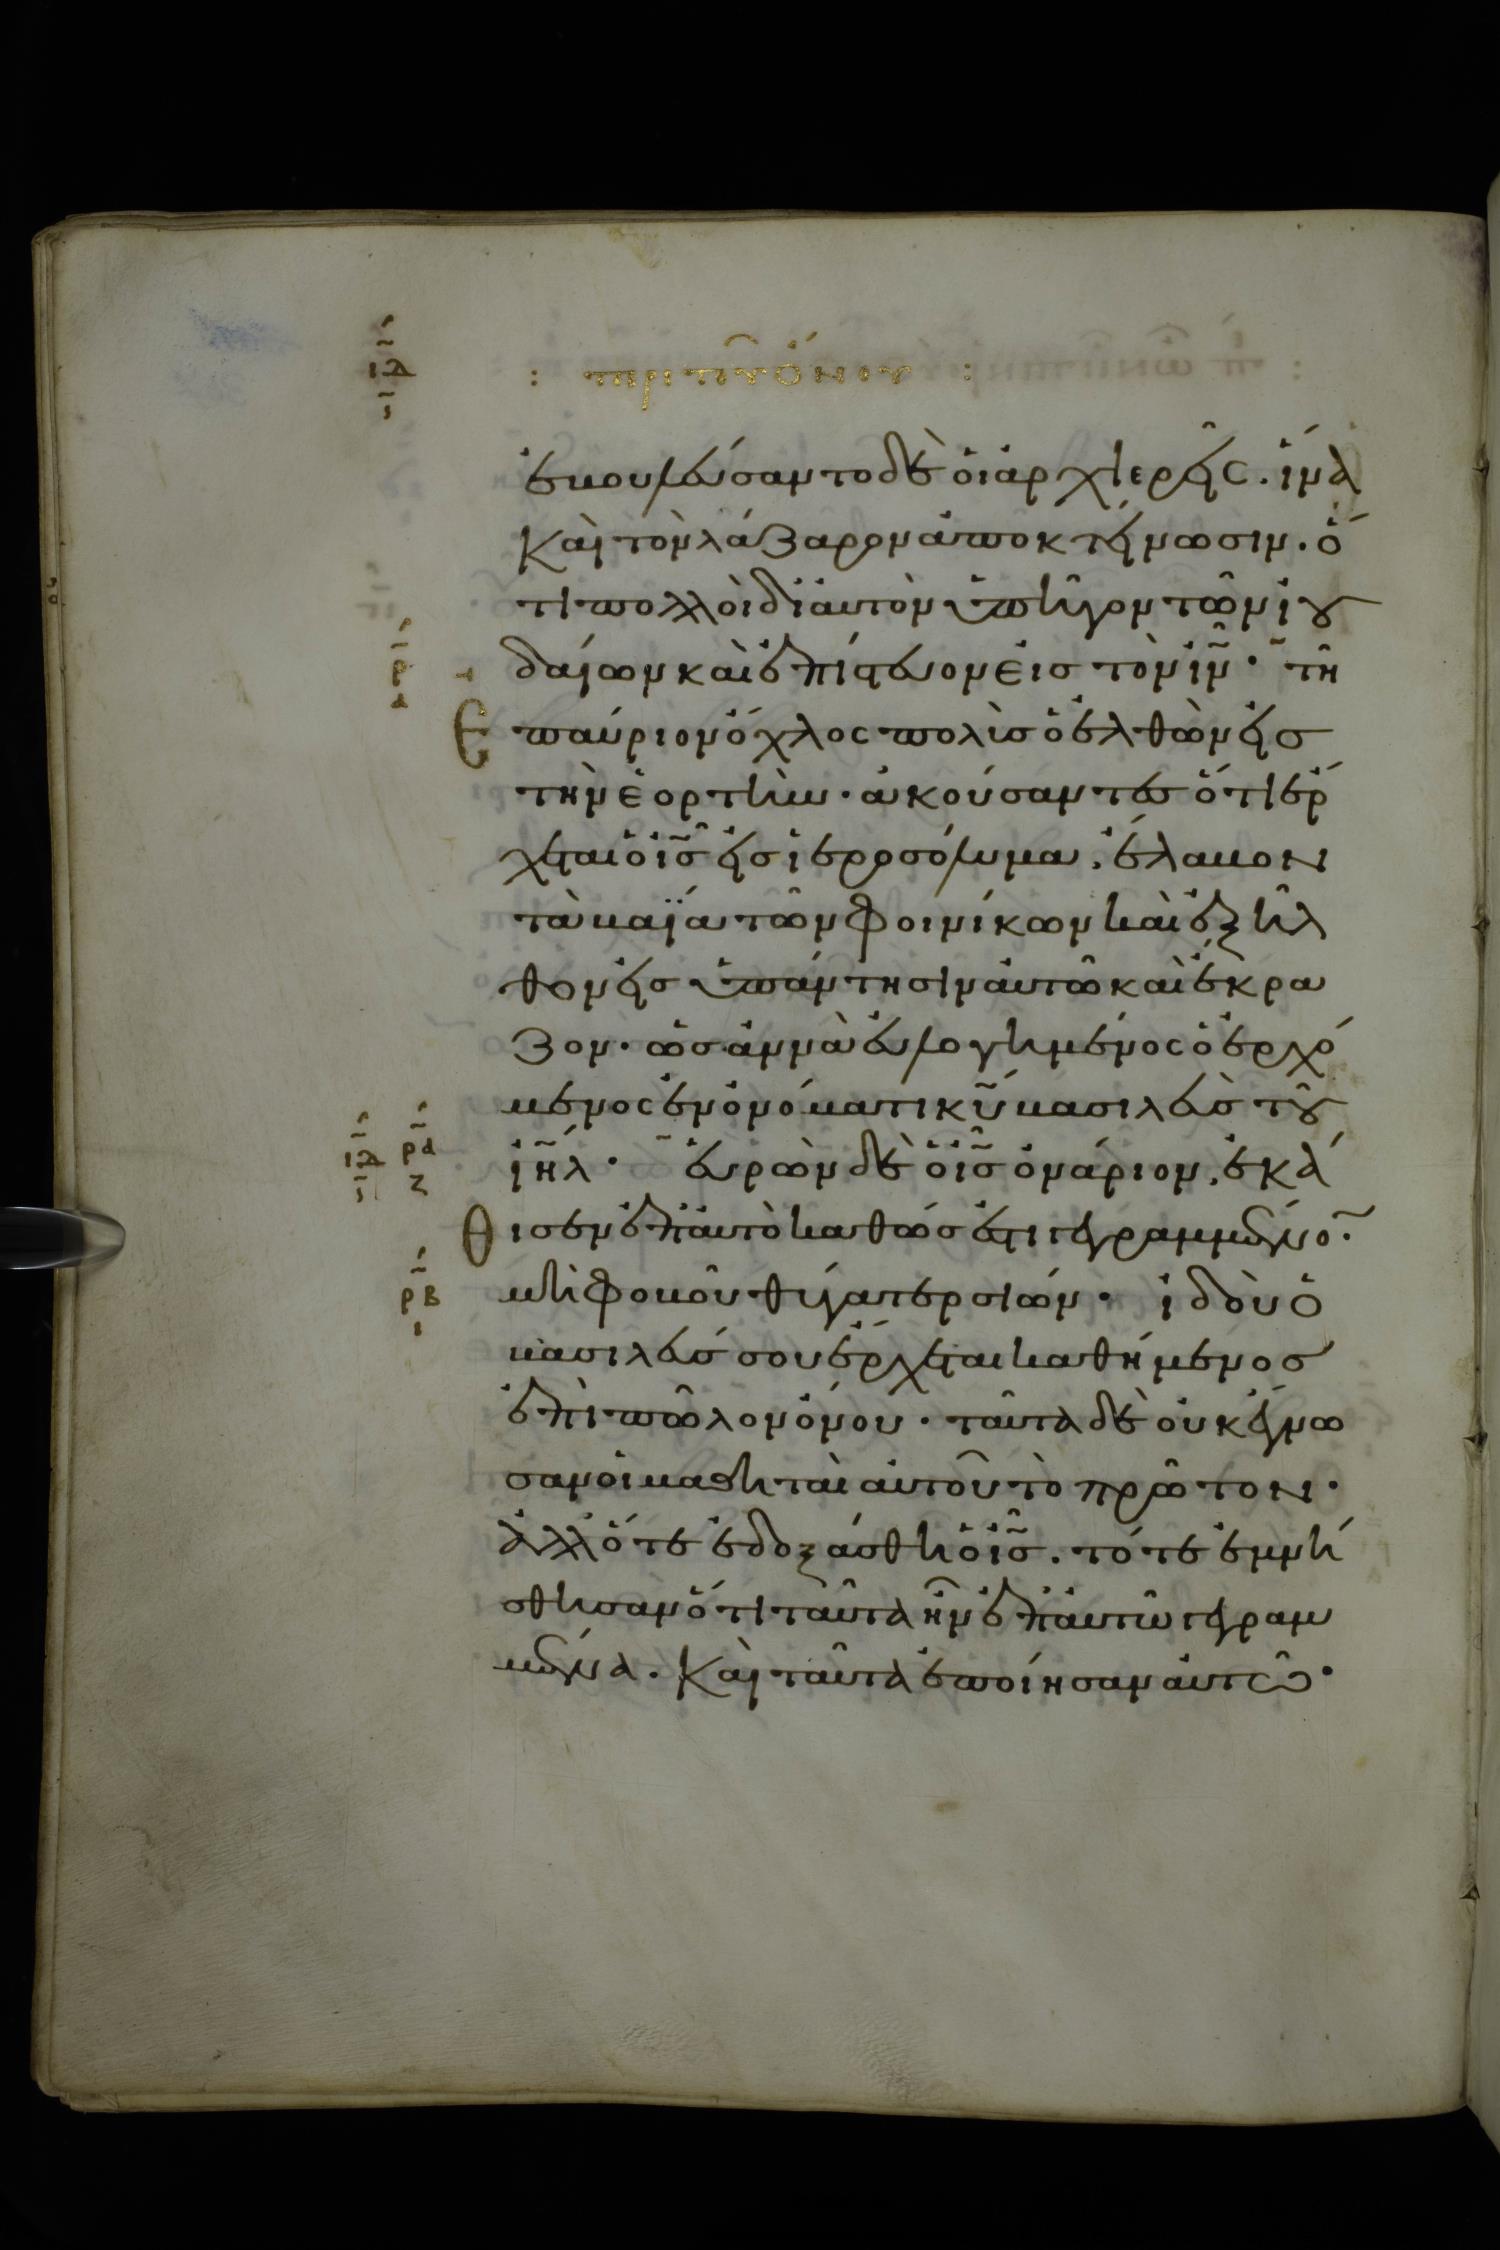 ιδ
: περὶ τοῦ ὄνου :
ἐβουλεύσαντο δὲ οἱ ἀρχιερεῖς. ἵνα
καὶ τὸν λάζαρον ἀποκτείνωσιν. ὅ
τι πολλοὶ δι αὐτὸν ὑπῆγον τῶν ἰου
δαίων καὶ ἐπίστευον εἰς τὸν ἰν̄· τῆ
ρ
α
Ἐπαύριον ὄχλος πολὺσ ὁ ἐλθὼν εἰσ
τὴν ἑορτὴν· ἀκούσαντεσ ὅτι ἔρ
χεται ὁ ισ̄ εἰσ ἱεροσόλυμα, ἔλαβον
τὰ βαΐα τῶν φοινίκων καὶ ἐξῆλ
θον εἰσ ὑπάντησιν αὐτῶ καὶ ἔκρα
ζον· ὡσαννὰ εὐλογημένος ὁ ἐρχό
μενος ἐν ὀνόματι κῡ βασιλεὺσ τοῦ
ιδ ρα ζ
ἰηλ̄· εὑρὼν δὲ ὁ ισ̄ ὀνάριον, ἐκά
Θισεν ἐπ αὐτὸ καθώσ ἐστι γεγραμμένον·
ρβ
ι
μὴ φοβοῦ θύγατερ σιών· ἰδοὺ ὁ
βασιλεύσ σου ἔρχεται καθήμενοσ
ἐπὶ πῶλον ὄνου· ταῦτα δὲ οὐκ ἔγνω
σαν οἱ μαθηταὶ αὐτοῦ τὸ πρῶτον·
ἀλλ ὅτε ἐδοξάσθη ὁ ισ̄. τότε ἐμνή
σθησαν ὅτι ταῦτα ἦν ἐπ αὐτῶ γεγραμ
μένα. καὶ ταῦτα ἐποίησαν αὐτῶ·